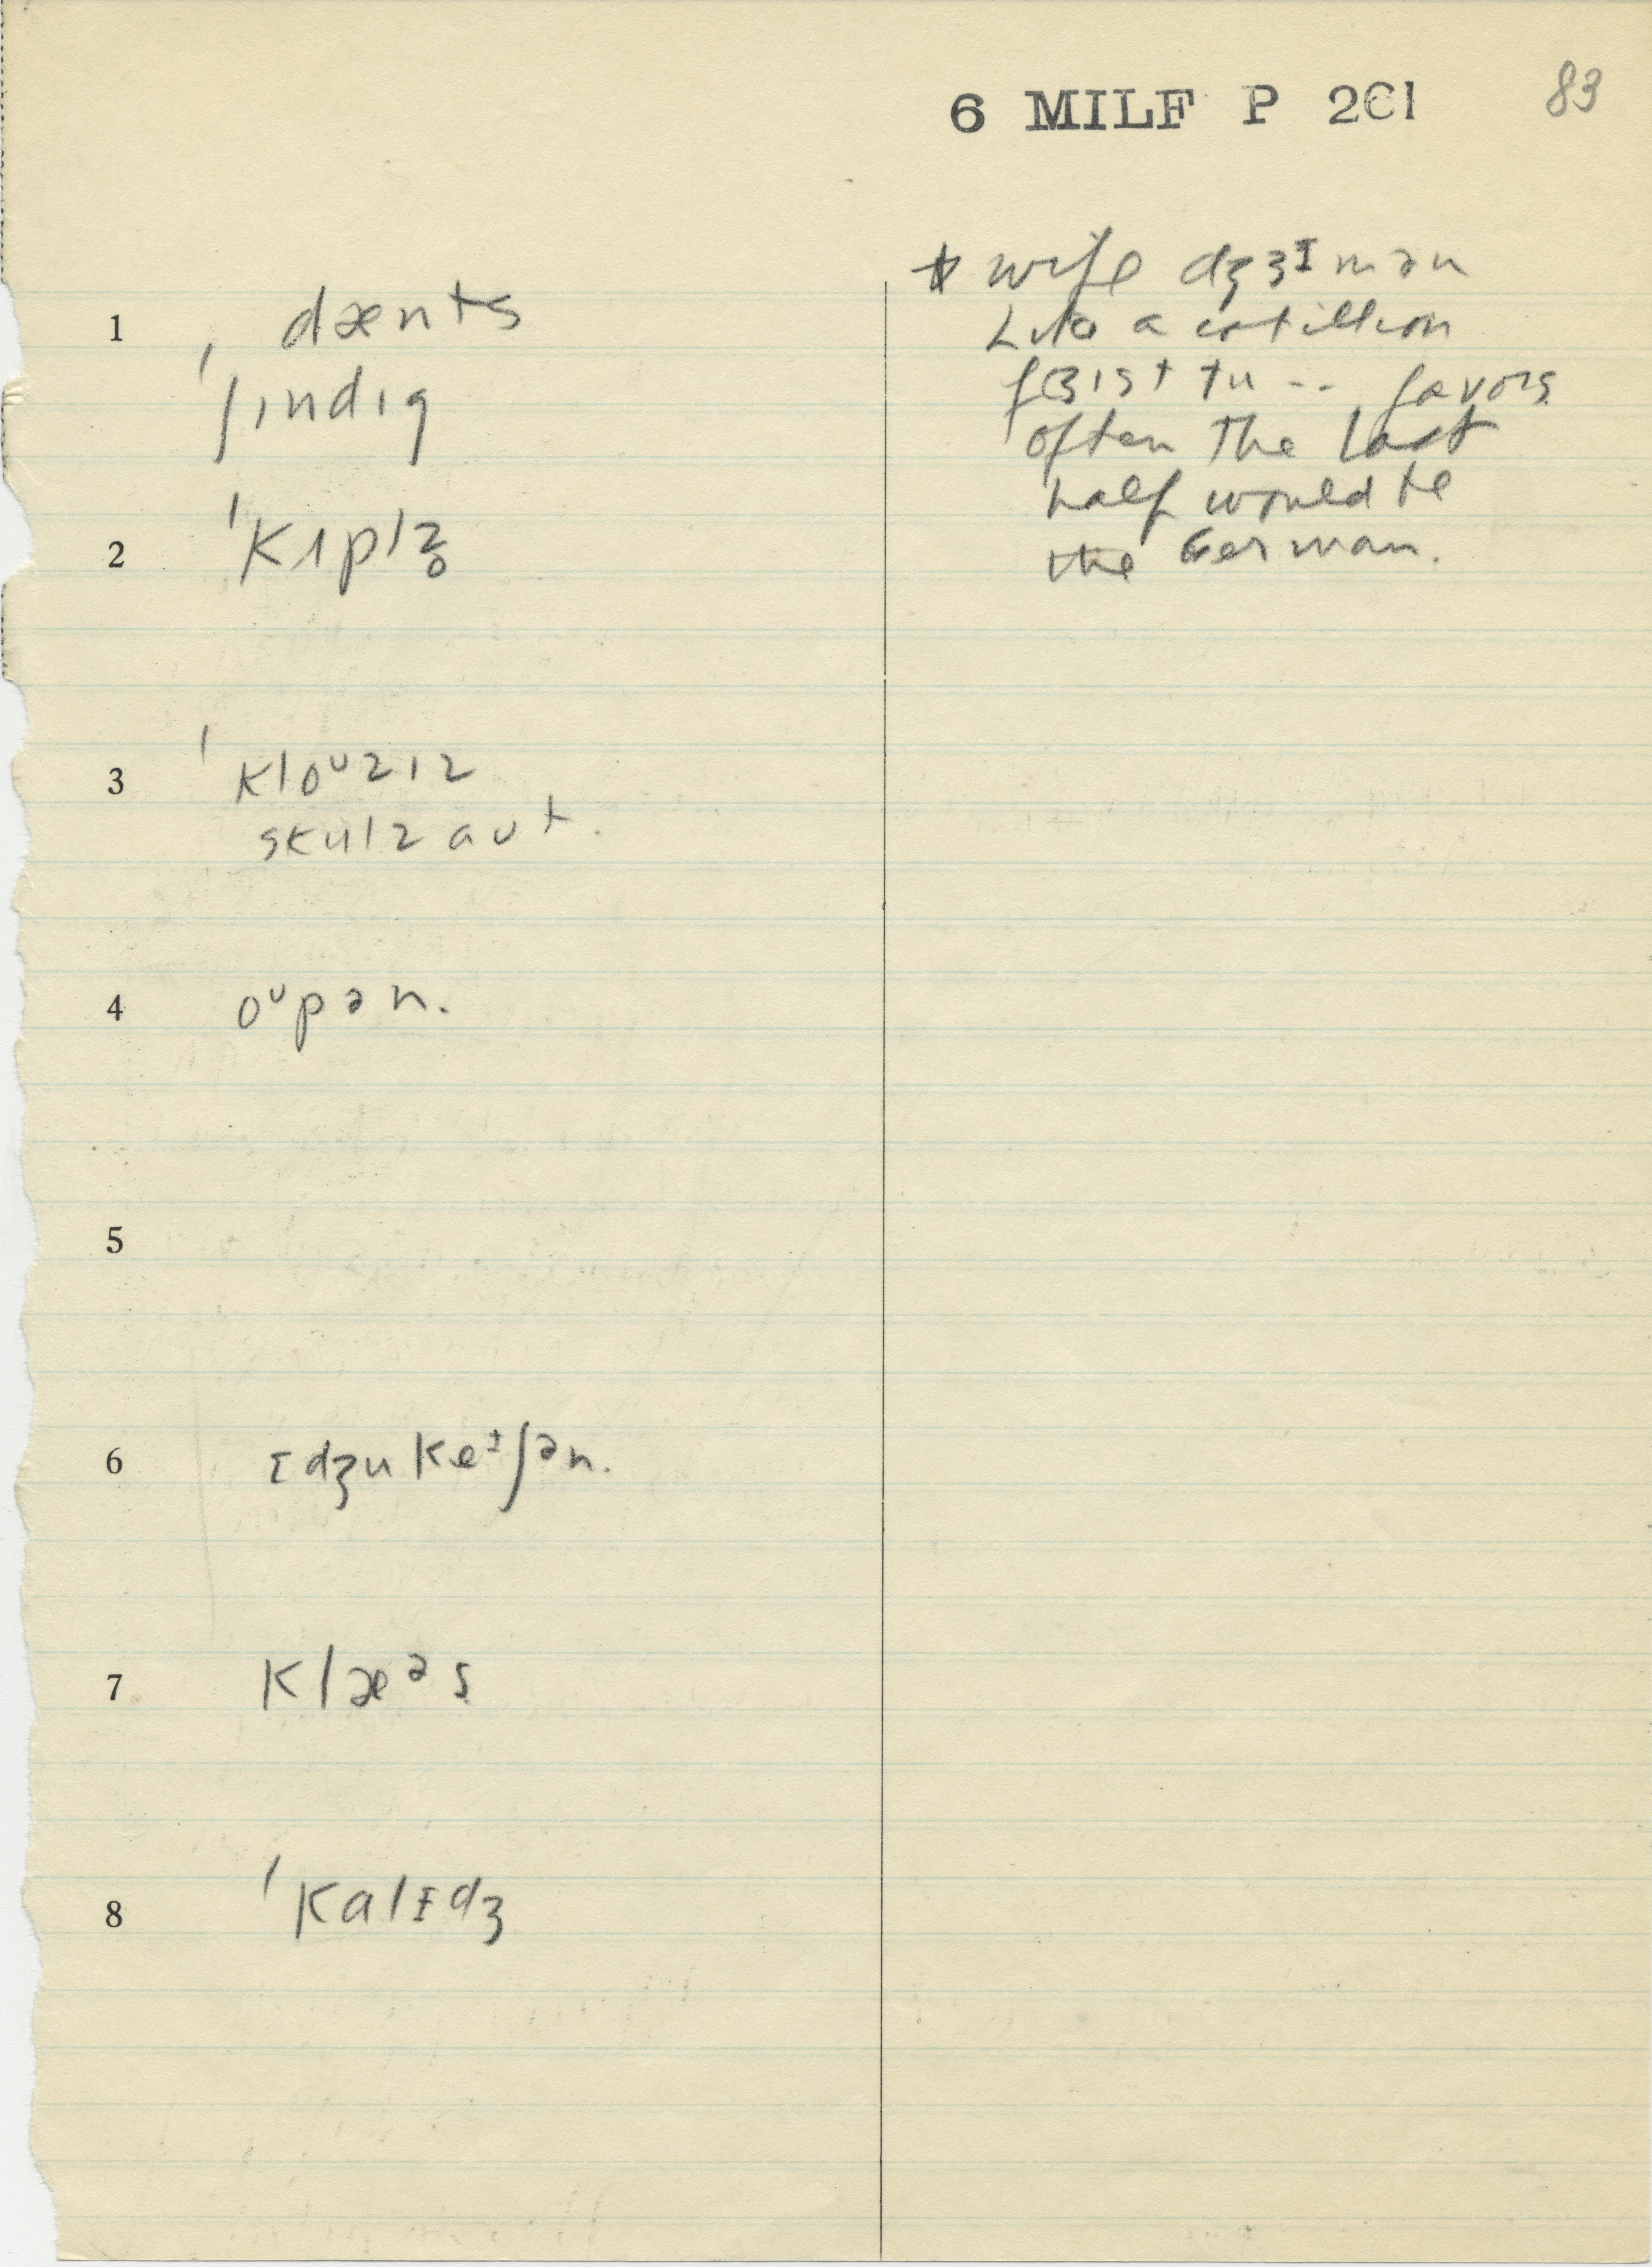 6 MILF P 201
83
1 dænts
ˈʃɪndɪg
2 ˈkɪpɪʒ
3 ˈkloᶷzɪz
skulz aut.
4 oᶷpən.
5
6 ɪdʒukeᶤʃən.
7 klæᵊs
8 ˈkalɪdʒ
* wife dʒɜᶤmən
Like a cotillion
tu -- favors
often the last
half would be
the German.